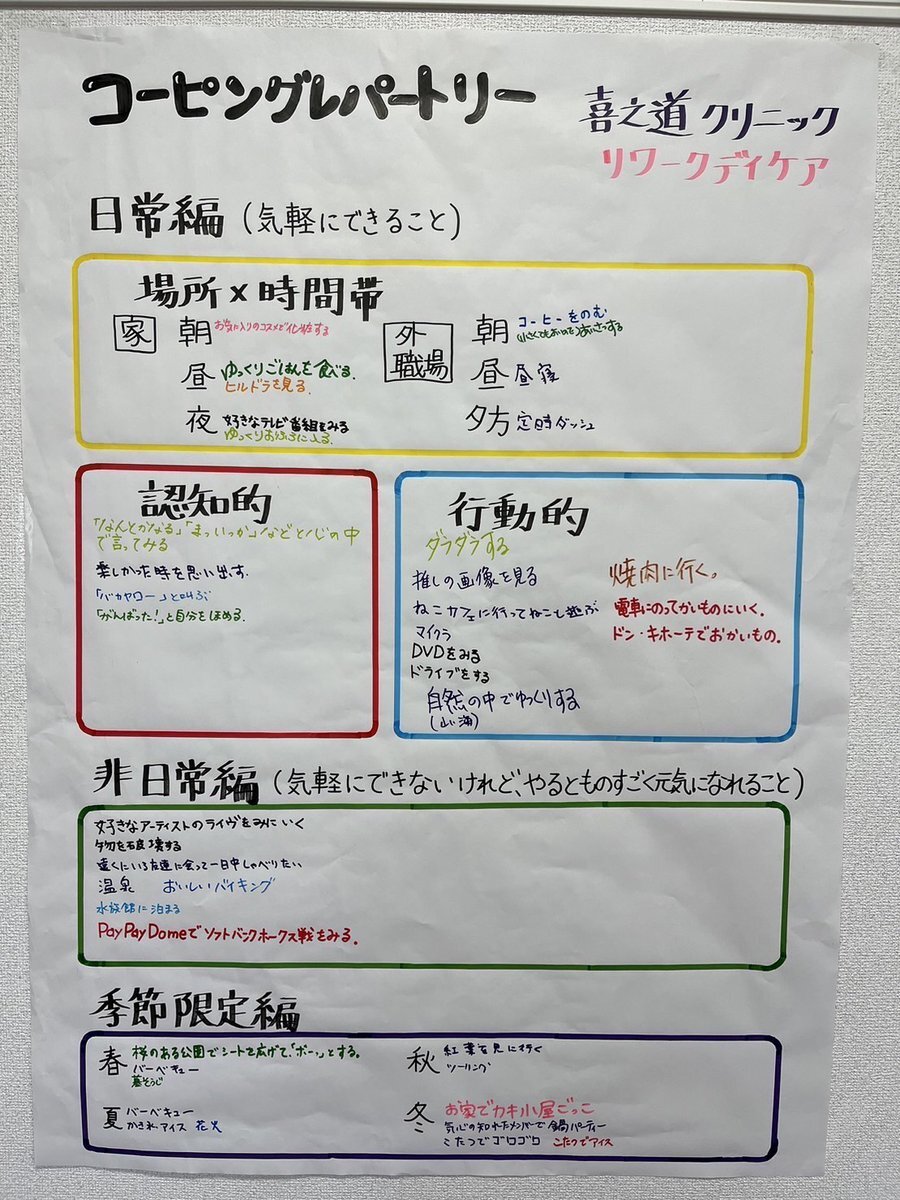 コーピングレパートリー
喜之道 クリニック
リワークディケア
日常編(気軽にできること)
場所×時間帯
家
朝 お気に入りのコスメで化粧する
昼 ゆっくりごはんを食べる。
ヒルドラを見る。
夜 好きなテレビ番組をみる
ゆっくりおふろに入る。
外
職場
朝 コーヒーをのむ
あいさつする
昼 昼寝
夕方 定時ダッシュ
認知的
「なんとかなる」「まっいっか」などと心の中
で言ってみる
楽しかった時を思い出す.
「バカヤロー」と叫ぶ
「がんばった!」と自分をほめる.
行動的
ダラダラする
推しの画像を見る
ねこカフェに行ってねこと遊ぶ
マイクラ
DVDをみる
ドライブをする
自然の中でゆっくりする
(山、海)
焼肉に行く。
電車にのってかいものにいく.
ドン・キホーテでおかいもの.
非日常編(気軽にできないけれど、やるとものすごく元気になれること)
好きなアーティストのライヴをみにいく
物を破壊する
遠くにいる友達に会って一日中しゃべりたい
温泉 おいしいバイキング
水族館に泊まる
PayPayDomeでソフトバンクホークス戦をみる.
季節限定編
春 桜のある公園でシートを広げて、「ボーッ」とする。
バーベキュー
墓そうじ
夏 バーベキュー
かき氷、アイス 花火
秋 紅葉を見に行く
ツーリング
冬 お家でカキ小屋ごっこ
気心の知れたメンバーで鍋パーティー
こたつでゴロゴロ こたつでアイス